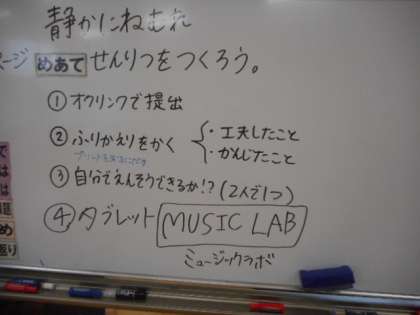 静かにねむれ
ページ めあて せんりつをつくろう。
① オクリンクで提出
② ふりかえりをかく
・工夫したこと
・かんじたこと
③ 自分でえんそうできるか!? (2人で1つ)
④ タブレット MUSIC LAB
ミュージックラボ